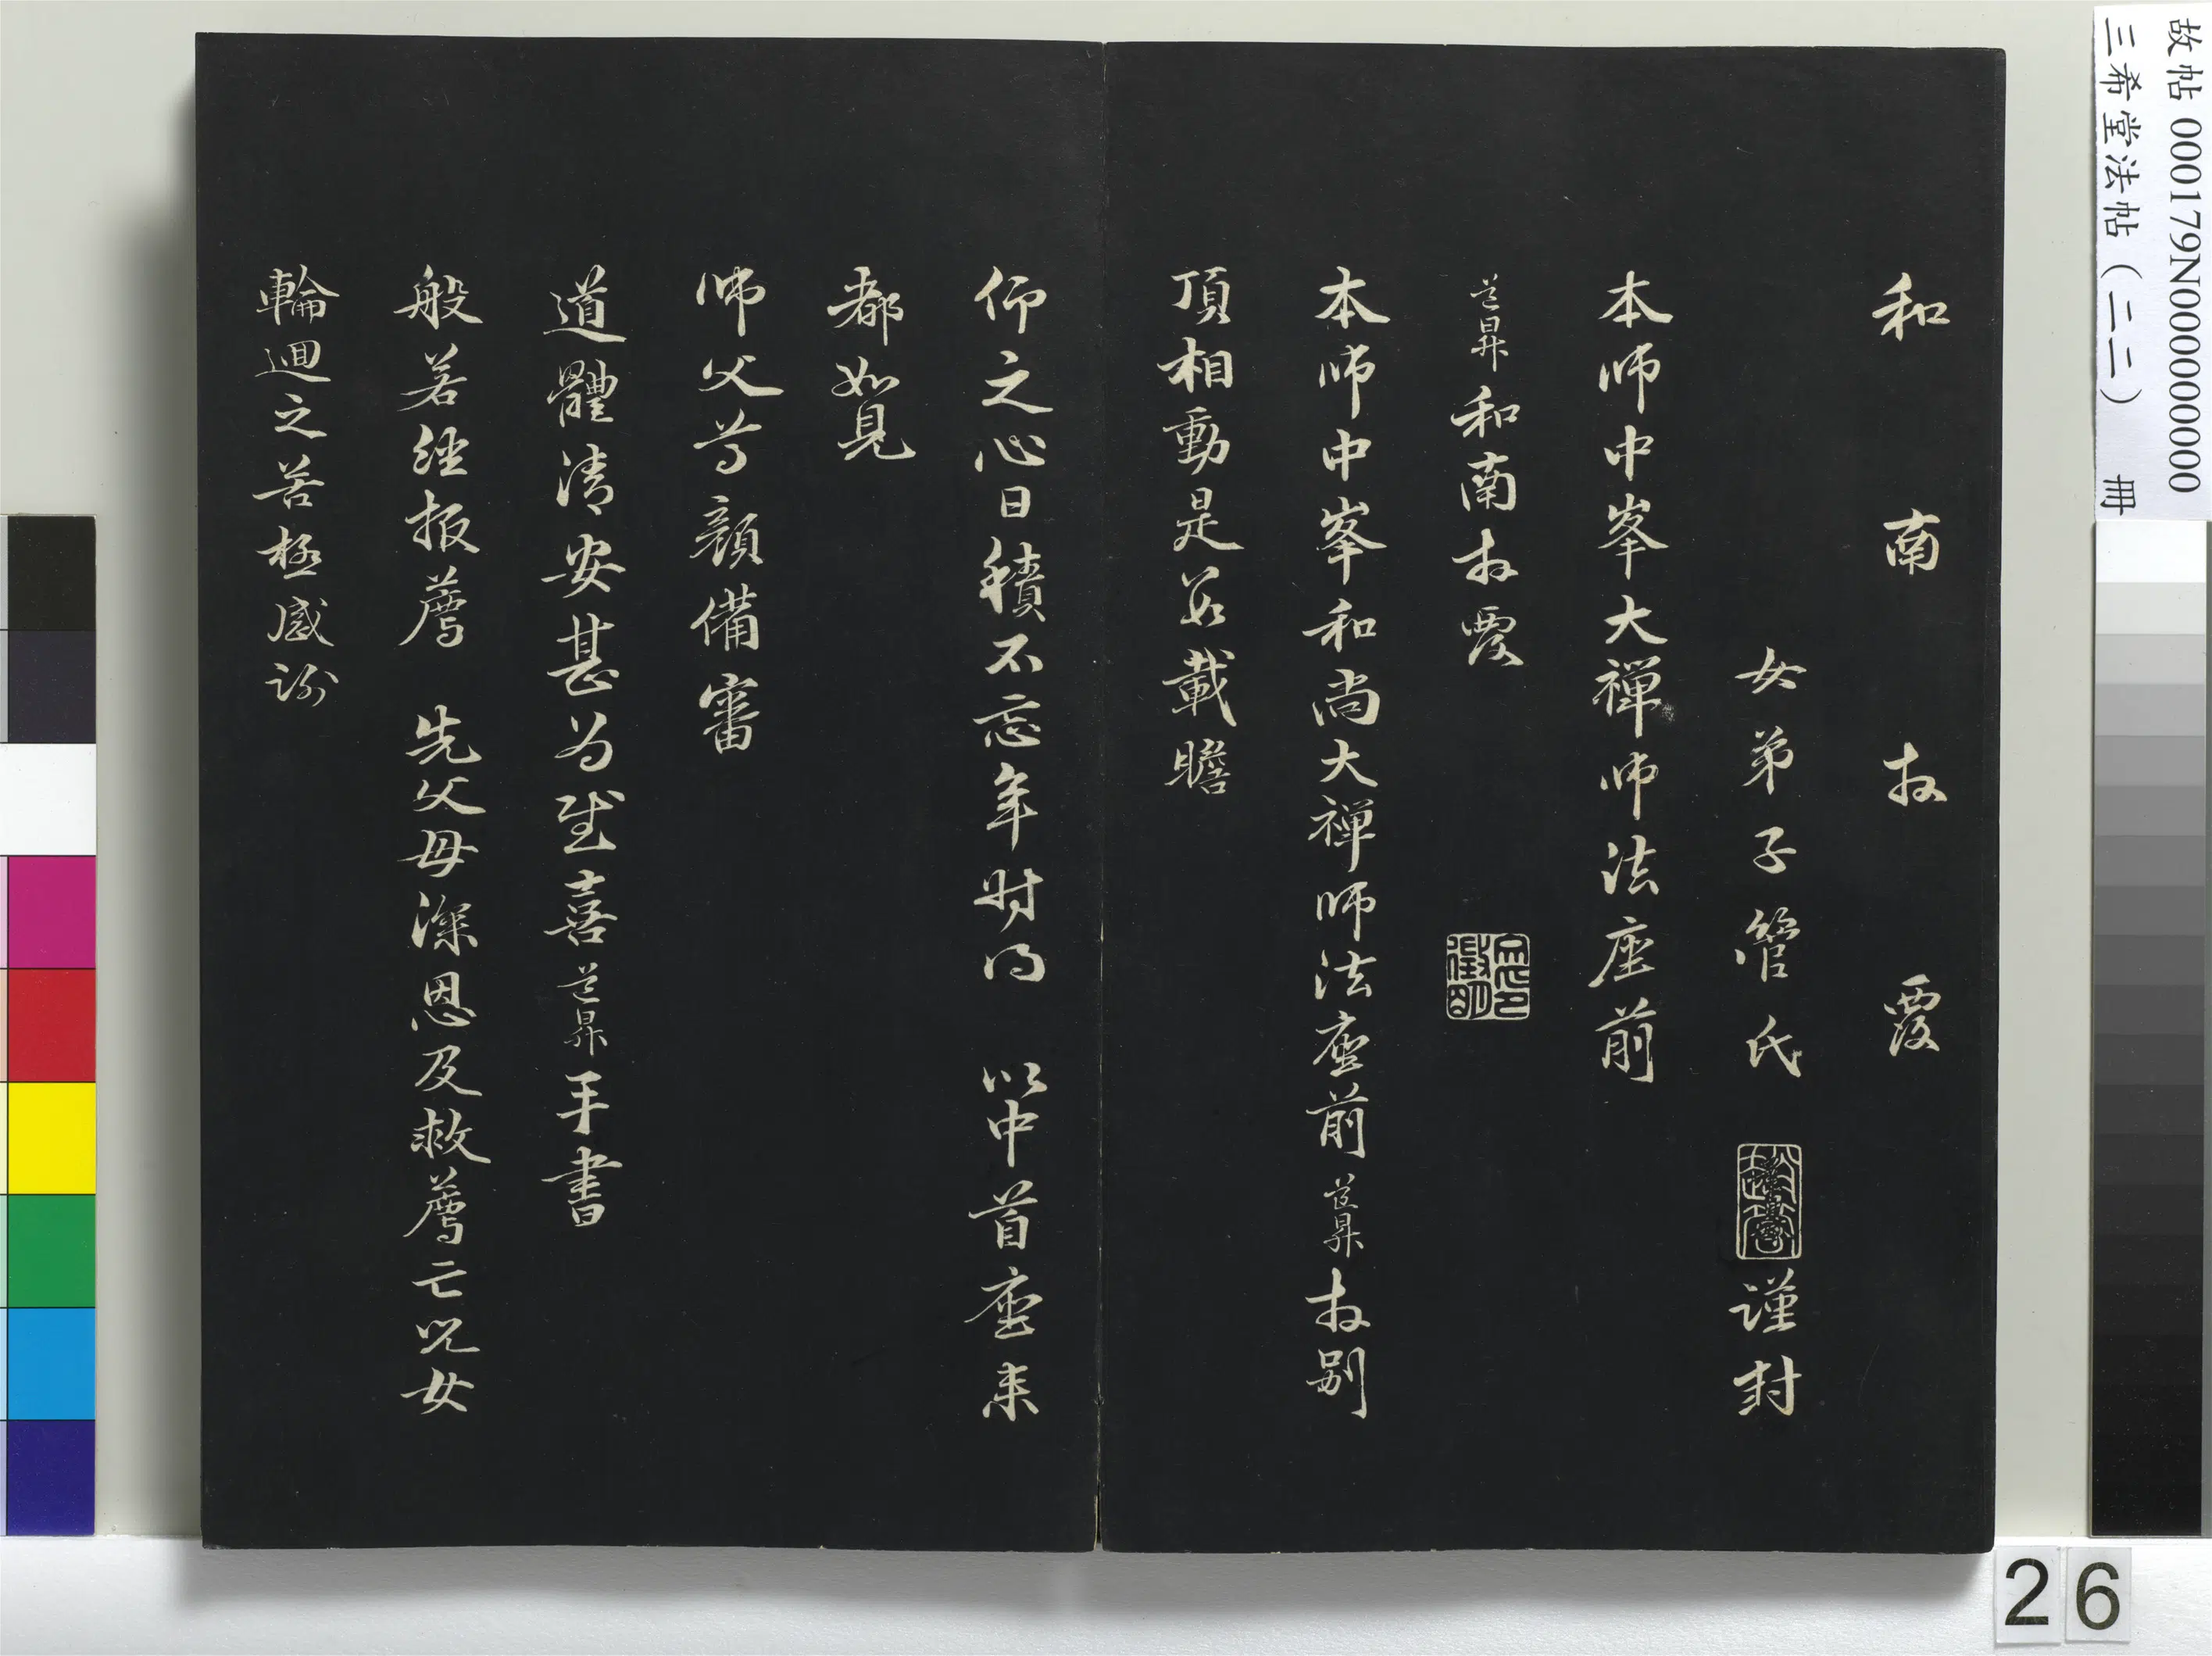 故帖 000179N000000000
三希堂法帖（二二） 冊
和南拜覆
女弟子管氏 謹封
本師中峯大禅師法座前
道昇和南拜覆
本師中峯和尚大禅師法座前道昇拜別
頂相動是數載瞻
仰之心日積不忘年时得 以中首座来
都如見
師父尊顔備審
道體清安甚為慰喜道昇手書
般若經报薦 先父母深恩及救薦亡兒女
輪迴之苦極感謝
26